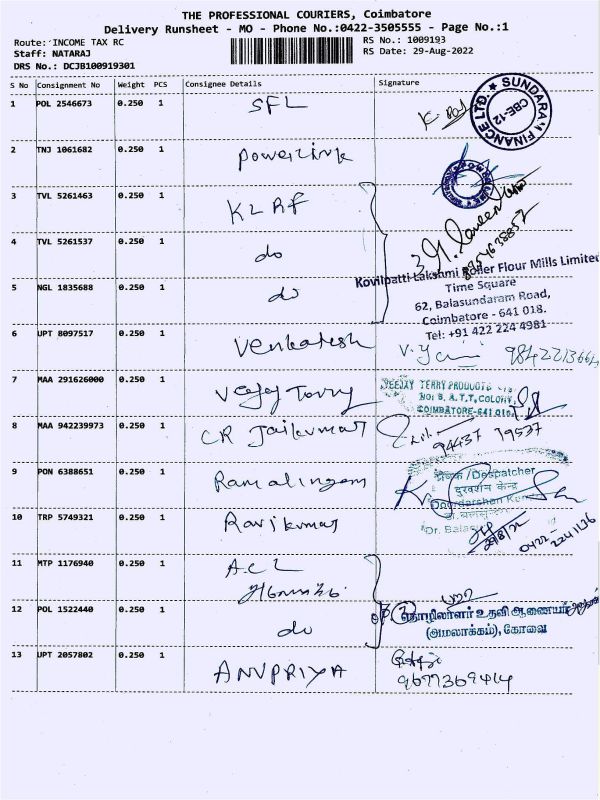 THE PROFESSIONAL COURIERS, Coimbatore
Delivery Runsheet - MO - Phone No.:0422-3505555 - Page No.:1
Route: INCOME TAX RC
RS No.: 1009193
Staff: NATARAJ
RS Date: 29-Aug-2022
DRS No.: DCJB100919301
S No Consignment No Weight PCS Consignee Details Signature
1 POL 2546673 0.250 1 SFL
SUNDARAM FINANCE LTD. CBE-12
2 TNJ 1061682 0.250 1 Powerlink
3 TVL 5261463 0.250 1 KLRF
4 TVL 5261537 0.250 1 do
Kovilpatti Lakshmi Roller Flour Mills Limited
5 NGL 1835688 0.250 1 do
Time Square
62, Balasundaram Road,
Coimbatore - 641 018.
Tel: +91 422 224 4981
6 UPT 8097517 0.250 1 Venkatesh
7 MAA 291626000 0.250 1 Veejay Terry
VEEJAY TERRY PRODUCTS
NO: 8, A.T.T. COLONY,
COIMBATORE-641 018
8 MAA 942239973 0.250 1 CR Jaikumar
94437 19537
9 PON 6388651 0.250 1 Ramalingam
प्रेषक /Despatcher
दूरदर्शन केन्द्र
Doordarshan
10 TRP 5749321 0.250 1 Ravikumar
29/8/22
0422
11 MTP 1176940 0.250 1 A.C.L
அமலாக்கம்
12 POL 1522440 0.250 1 do
தொழிலாளர் உதவி ஆணையர்
(அமலாக்கம்), கோவை
13 UPT 2057802 0.250 1 ANUPRIYA
9677369414